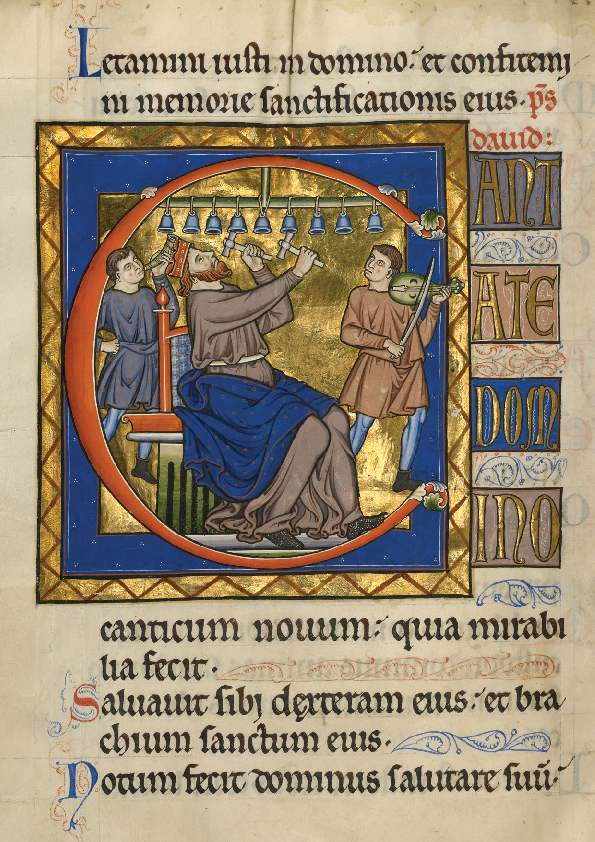 Letamini iusti in domino: et confitemi
ni memorie sanctificationis eius. p̄s
dauid:
CANT
ATE
DOM
INO
canticum nouum: quia mirabi
lia fecit.
Saluauit sibj dexteram eius: et bra
chium sanctum eius.
Notum fecit dominus salutare suū: